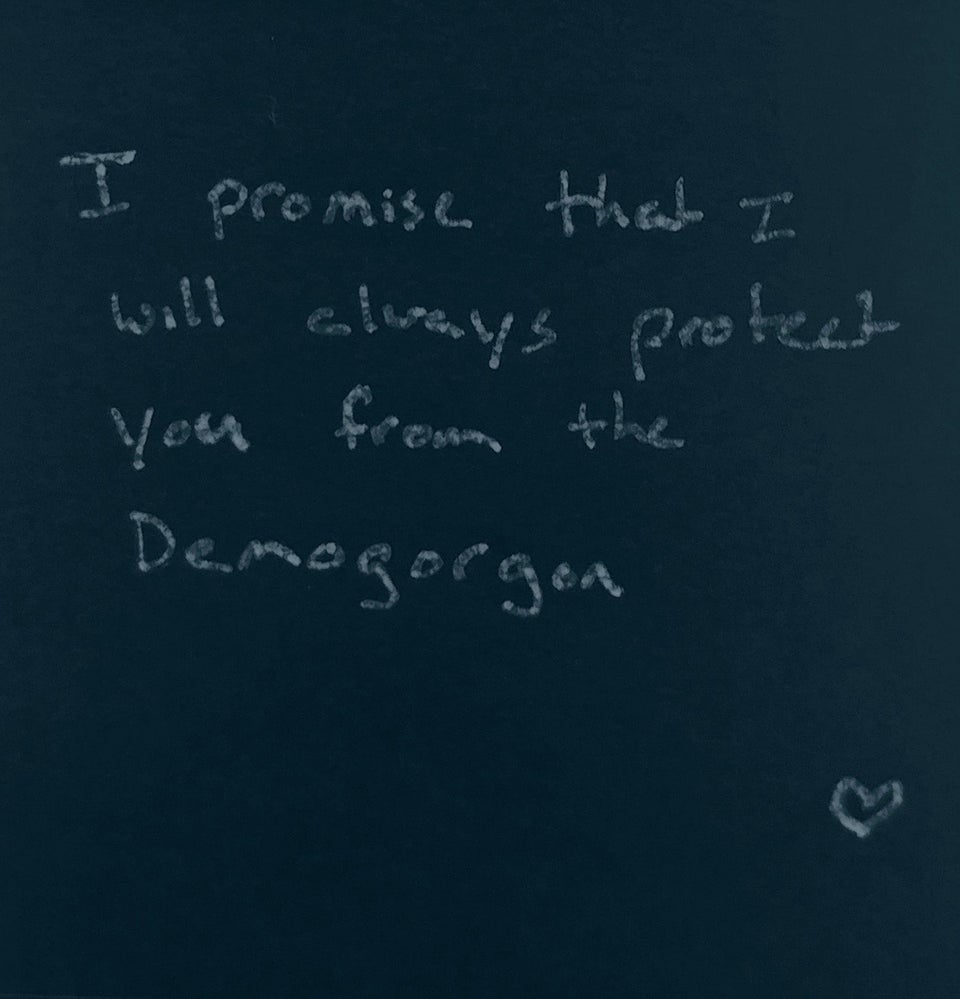 I promise that I
will always protect
you from the
Demogorgon